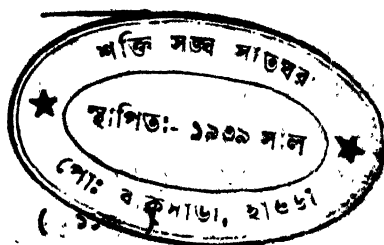 শক্তি সঙ্ঘ সাতঘর
স্থাপিতঃ- ১৯৩৯ সাল
পোঃ বাকুসাডা, হাওডা